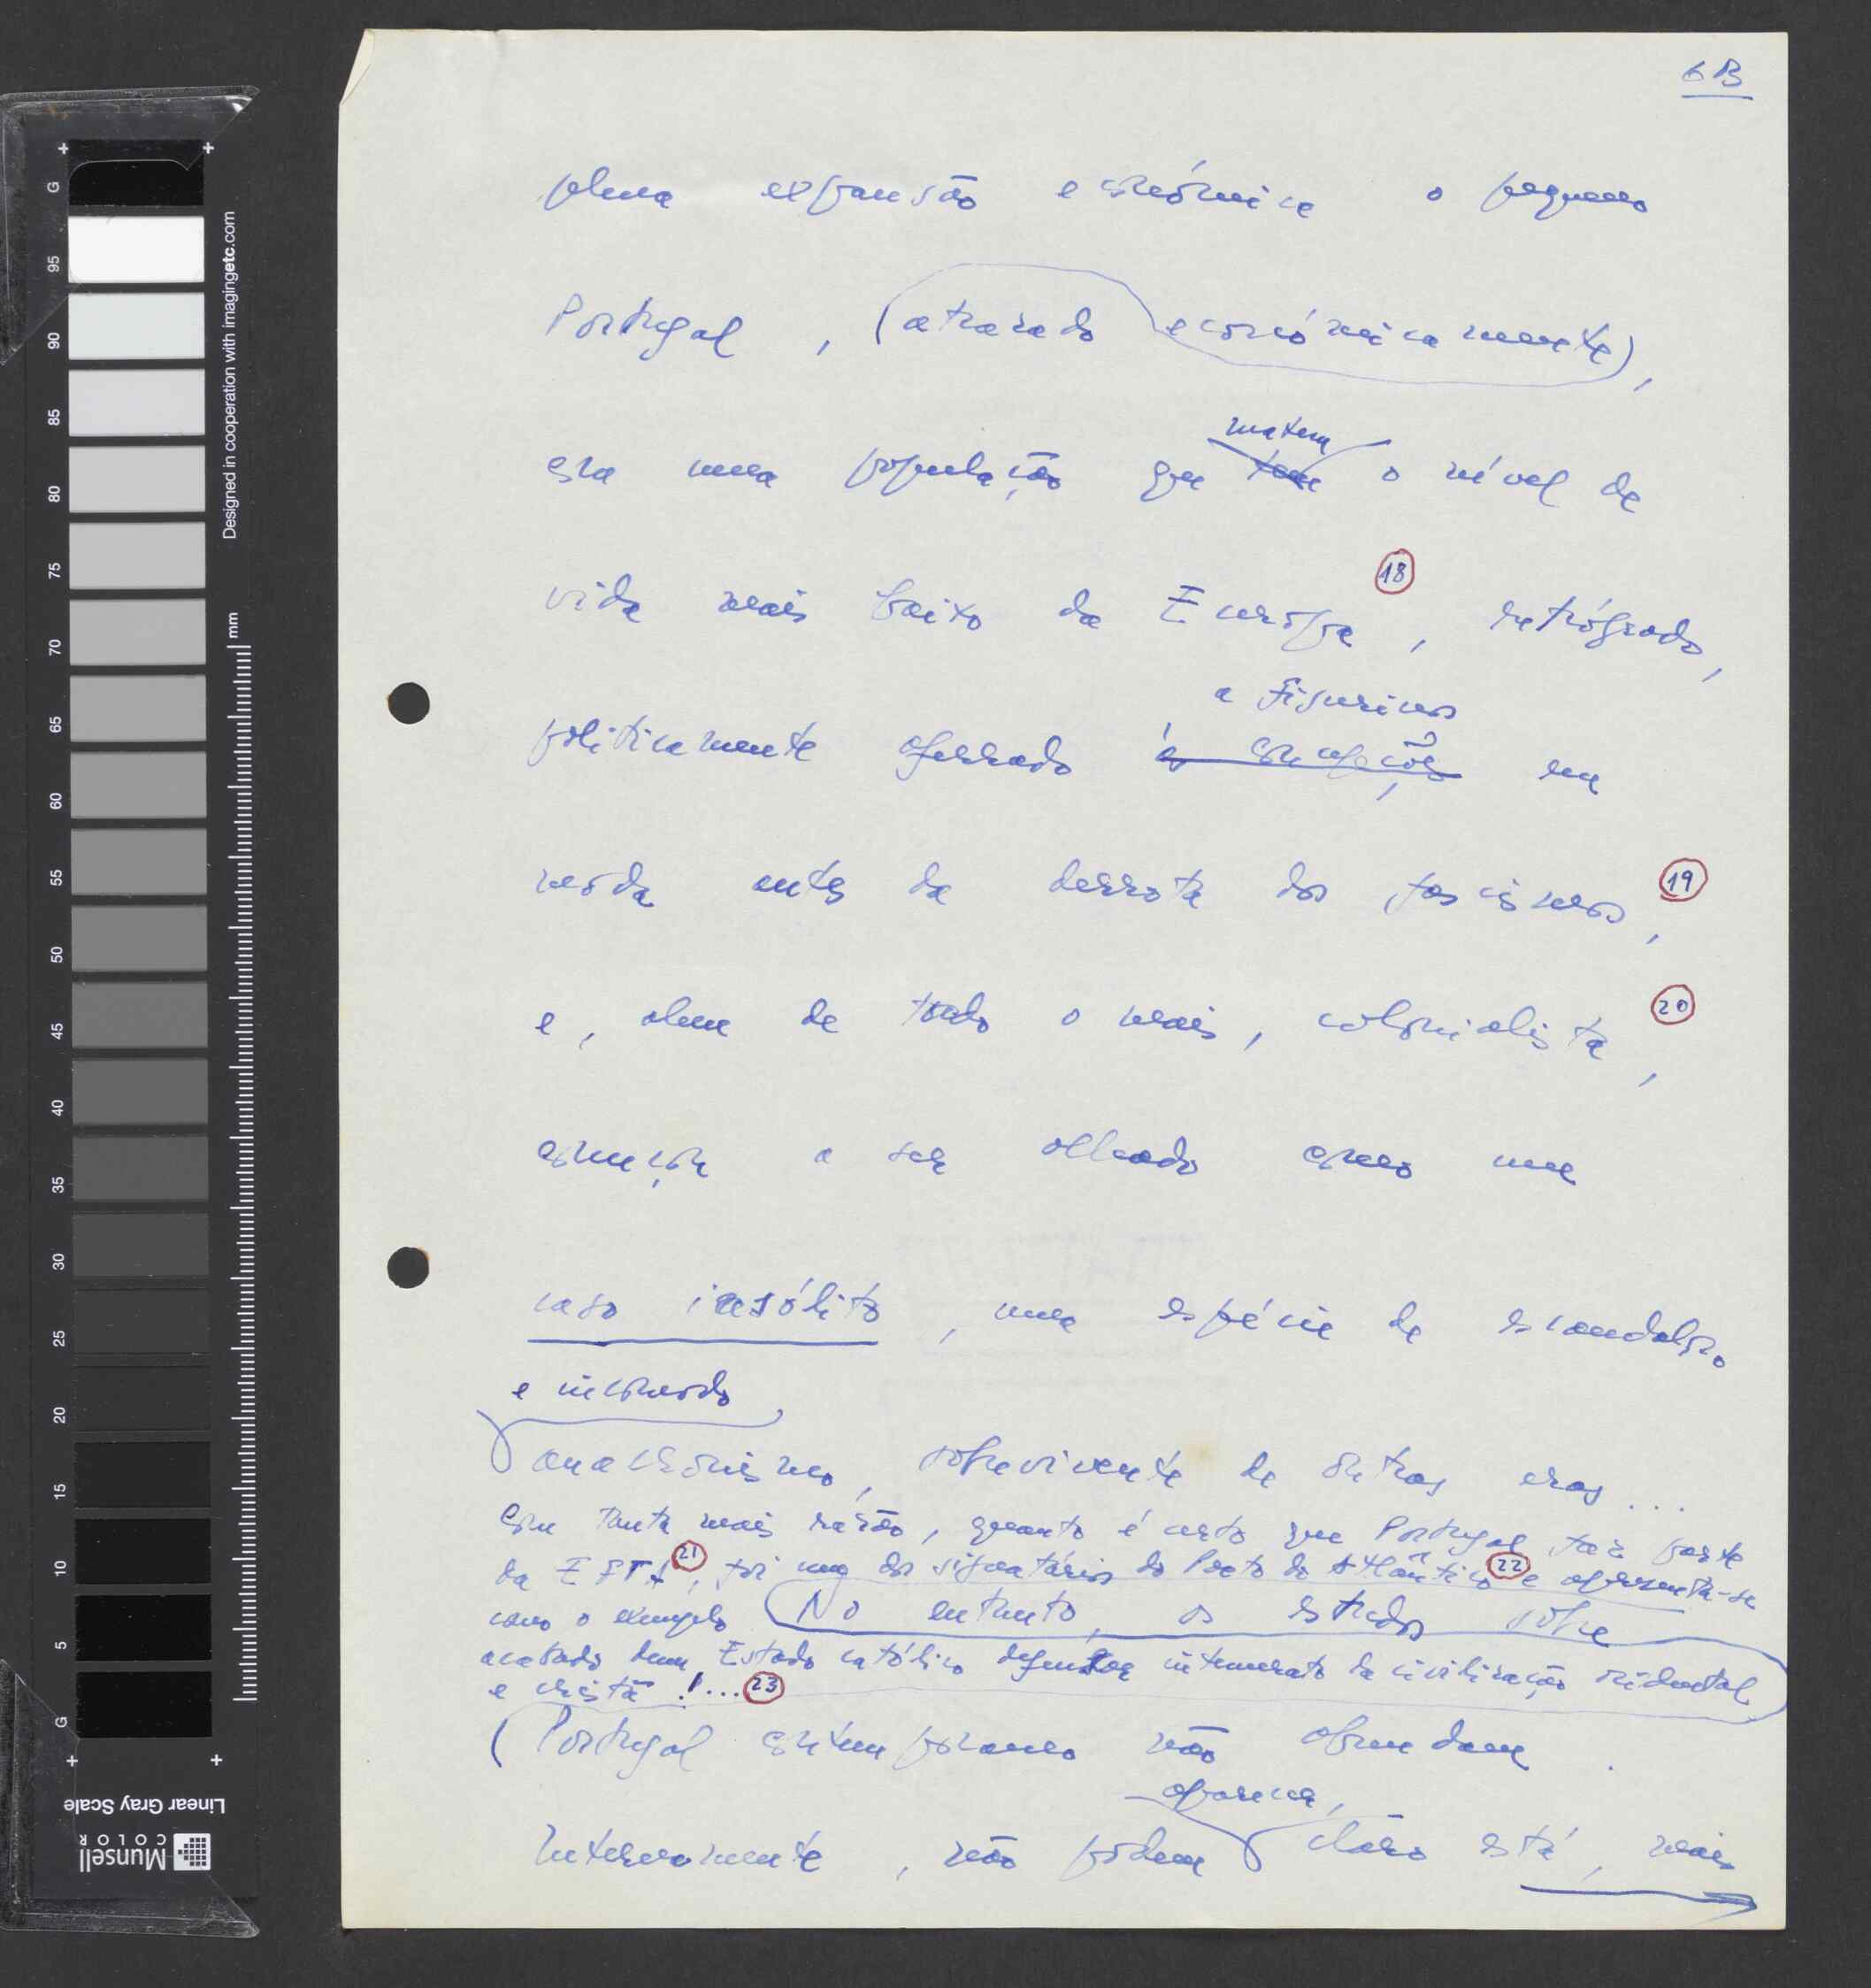 6B
plena expansão económica o pequeno
Portugal, (atrasado económicamente),
com uma população que tem matem o nível de
vida mais baixo da Europa (18), retrógrado,
a figurinos
politicamente aferrado às concepções em
moda antes da derrota dos fascismos, (19)
e, alem de tudo o mais, colonialista (20),
começou a ser olhado como um
caso insólito, uma espécie de escandaloso
e incómodo
anacronismo, sobrevivente de outras eras...
Com tanta mais razão, quanto é certo que Portugal faz parte
da EFTA (21), foi um dos signatários do Pacto do Atlântico (22) e apresenta-se
como o exemplo
No entanto, os estudos sobre
acabado dum Estado católico defensor intemerato da civilização ocidental
e cristã!... (23)
(Portugal contemporaneo não abundam.
aparecer,
Internamente, não podem claro está, mais
G
95
90
85
80
75
70
65
60
55
50
45
40
35
30
25
20
15
10
5
G
mm
Designed in cooperation with imagingetc.com
Linear Gray Scale
Munsell
COLOR